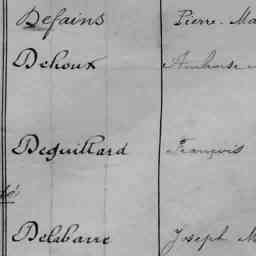 Defains Pierre-Ma
Dehoux Ambroise
Deguillard François
Delabarre Joseph M